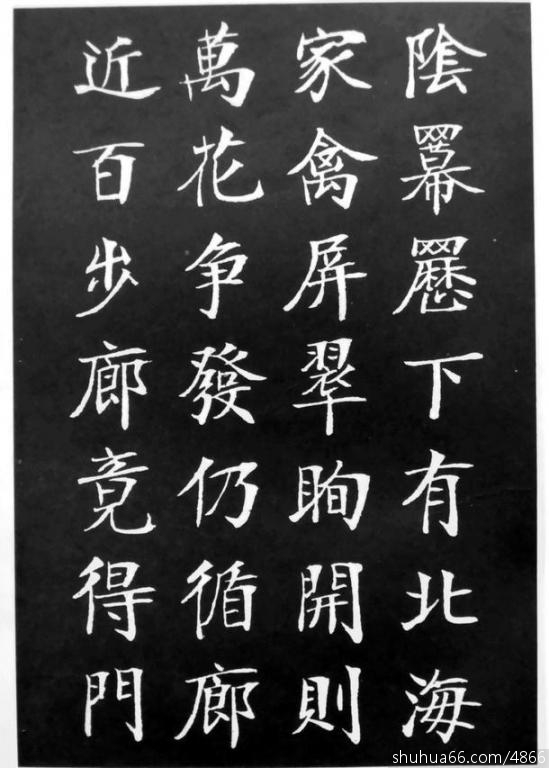 陰羃䍥下有北海
家禽屏翠眴開則
萬花争發仍循廊
近百步廊竟得門
shuhua66.com/4866